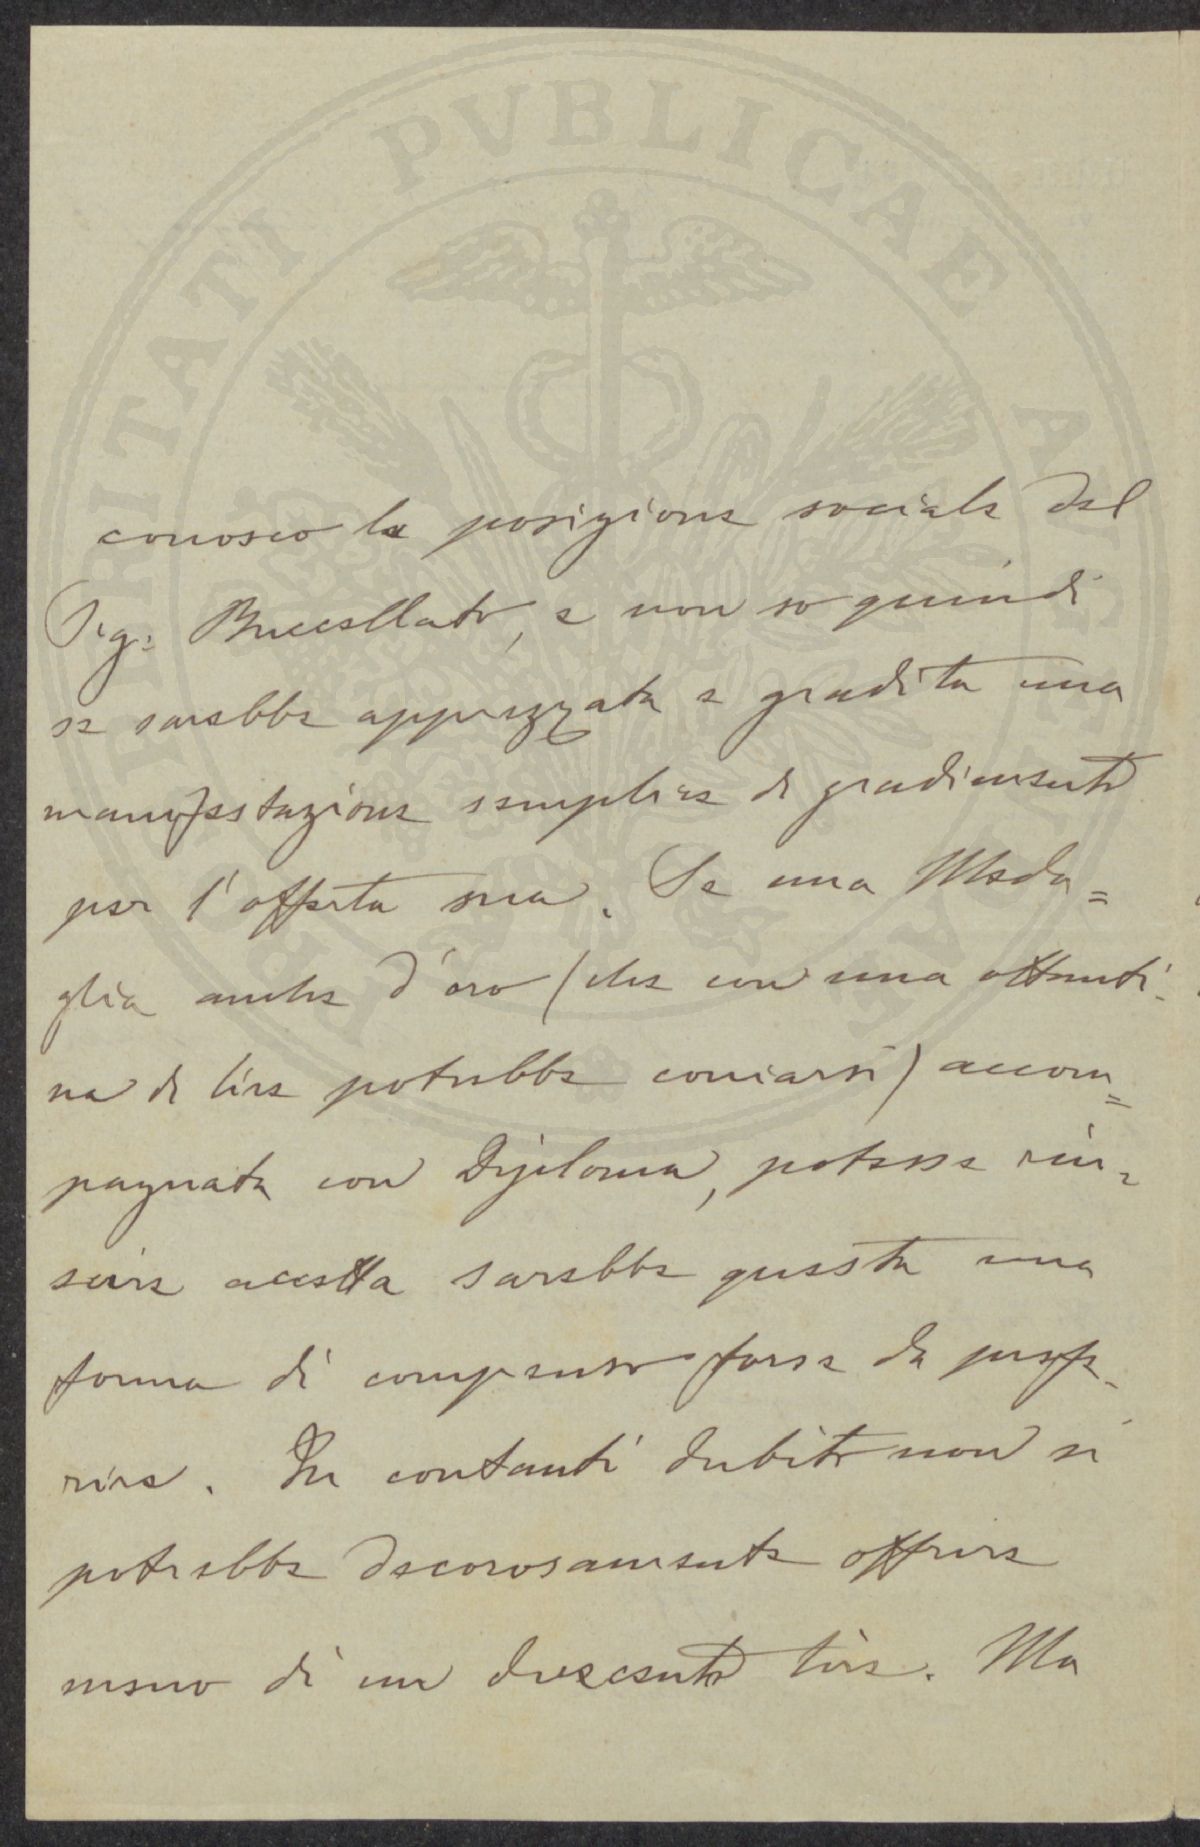 conosco la posizione sociale del
Sig: Buccellato, e non so quindi
se sarebbe apprezzata e gradita una
manifestazione semplice di gradimento
per l'offerta sua. Se una Meda=
glia anche d'oro (che con una ottanti-
na di lire potrebbe coniarsi) accom=
pagnata con Diploma, potesse riu=
scire accetta sarebbe questa una
forma di compenso forse da prefe-
rire. In contanti dubito non si
potrebbe decorosamente offrire
meno di un duecento lire. Ma
PVBLICAE